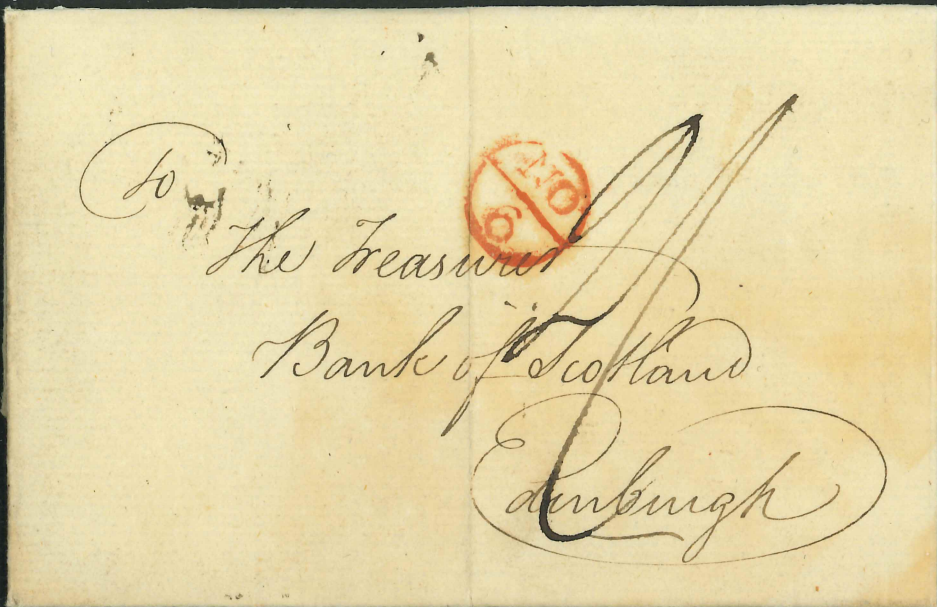 To
NO
6
The Treasurer
Bank of Scotland
Edinburgh